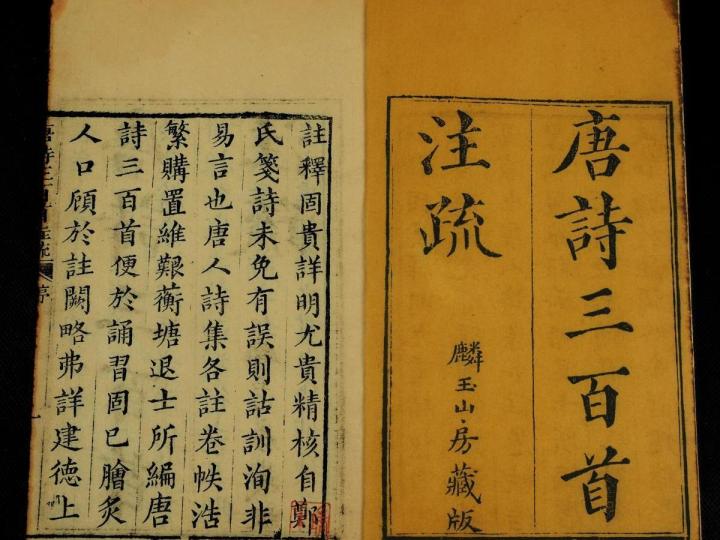 唐詩三百首
注疏
麟玉山房藏版
註釋固貴詳明尤貴精核自鄭
氏箋詩未免有誤則詁訓洵非
易言也唐人詩集各註卷帙浩
繁購置維艱蘅塘退士所編唐
詩三百首便於誦習固已膾炙
人口顧於註闕略弗詳建德上
唐詩三百首 疏 序